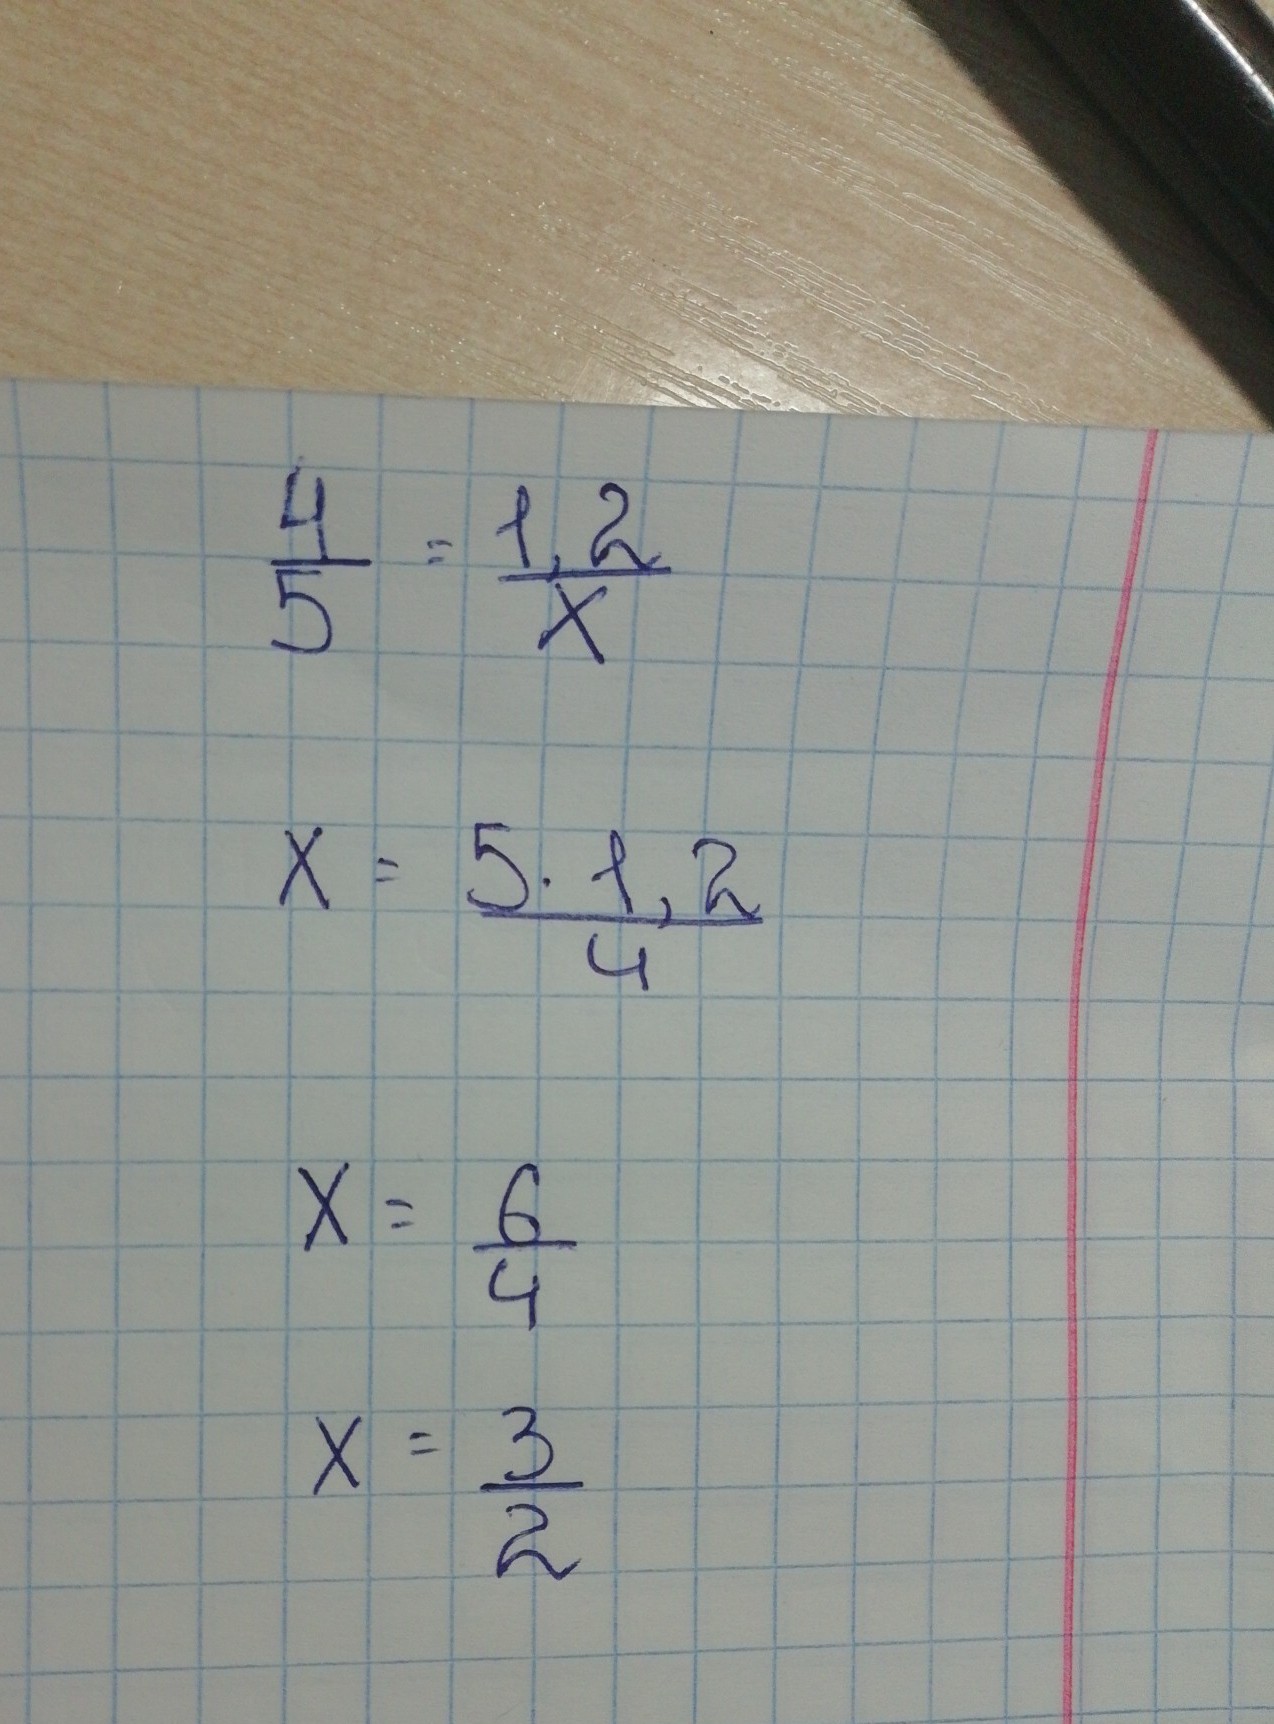 4/5 = 1,2/x
x = 5·1,2/4
x = 6/4
x = 3/2